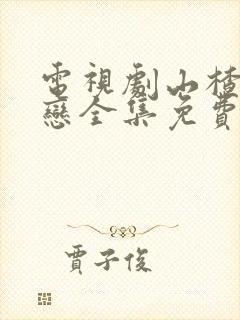 電視劇山楂
戀全集免費
賈子俊